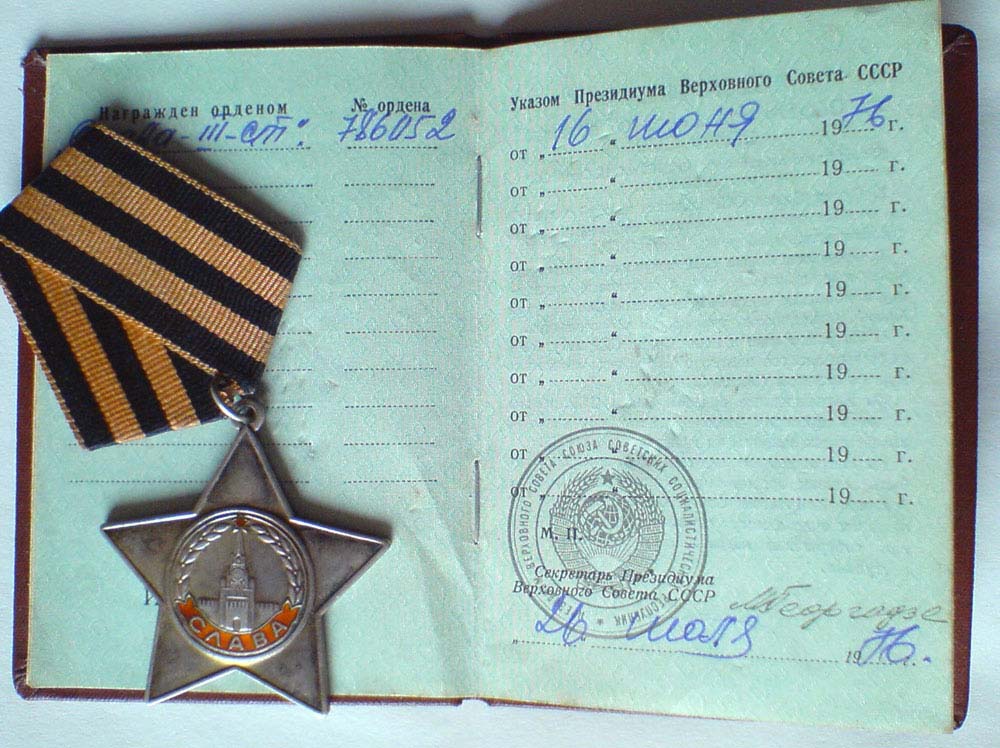 Награжден орденом
№ ордена
Слава-III-ст. 786052
Указом Президиума Верховного Совета СССР
от „ 16 “ июня 1976 г.
от „ “ 19 г.
от „ “ 19 г.
от „ “ 19 г.
от „ “ 19 г.
от „ “ 19 г.
от „ “ 19 г.
от „ “ 19 г.
от „ “ 19 г.
от „ “ 19 г.
М. П.
Секретарь Президиума
Верховного Совета СССР
МГеоргадзе
„ 26 июля 1976.
ВЕРХОВНОГО СОВЕТА СОЮЗА СОВЕТСКИХ СОЦИАЛИСТИЧЕСКИХ РЕСПУБЛИК
СЛАВА